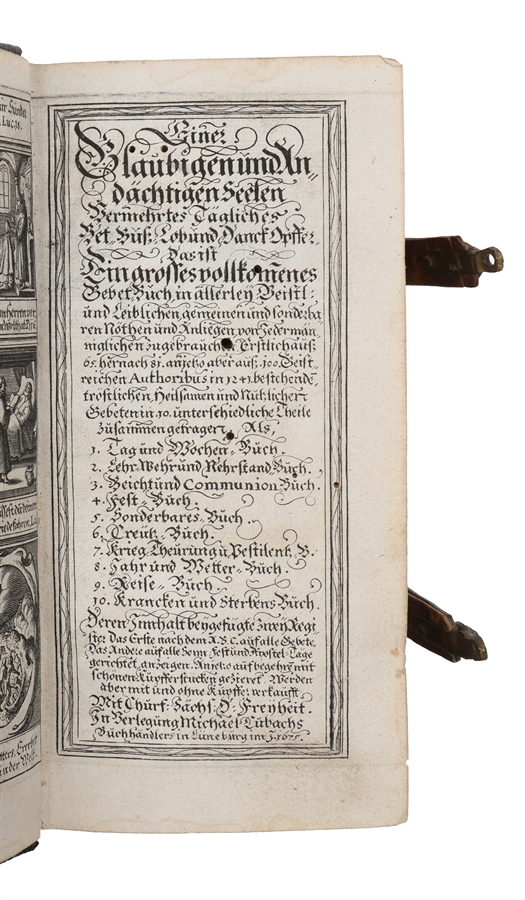 ür Sünder
Luc. 18.
Einer
Glaubigen und An„
dächtigen Seelen
Vermehrtes Tägliches
Bet, Buß, Lob und Danck Opffer.
Das ist
Ein grosses vollkom̄enes
Gebet Buch in allerley Geistl:
und Leiblichen gemeinen und sonderba
ren Nöthen und Anliegen von Jederman
niglichen zugebrauchen, Erstlich auß
65. hernach 81. anjetzo aber auß 100 Geist„
reichen Authoribus in 1241. bestehende
trostlichen, Heilsamen und Nützlichen
Gebeten in 10. unterschiedliche Theile
zusammen getragen, Als,
1. Tag und Wochen„ Buch.
2. Lehr, Wehr und Nehrstand Buch.
3. Beicht und Communion Buch.
4. Fest„ Buch.
5. Sonderbares„ Buch.
6. Creütz„ Buch.
7. Krieg, Theürung ů Pestilentz B.
8. Jahr und Wetter„ Buch
9. Reise„ Buch.
10. Krancken und Sterbens Buch.
Deren Innhalt beygefügte zwey Regi„
ster, Das Erste nach dem A.B.C. auf alle Gebete,
Das Andere auf alle Sonn, Fest und Apostel„ Tage
gerichtet, anzeigen. Anjetzo auf begehren mit
schönen Kupfferstucken gezieret. Werden
aber mit und ohne Kupffer verkaufft.
Mit Churf: Sächs: D. Freyheit.
In Verlegung Michael Lubachs
Buchhändlers in Lüneburg im J. 1675.